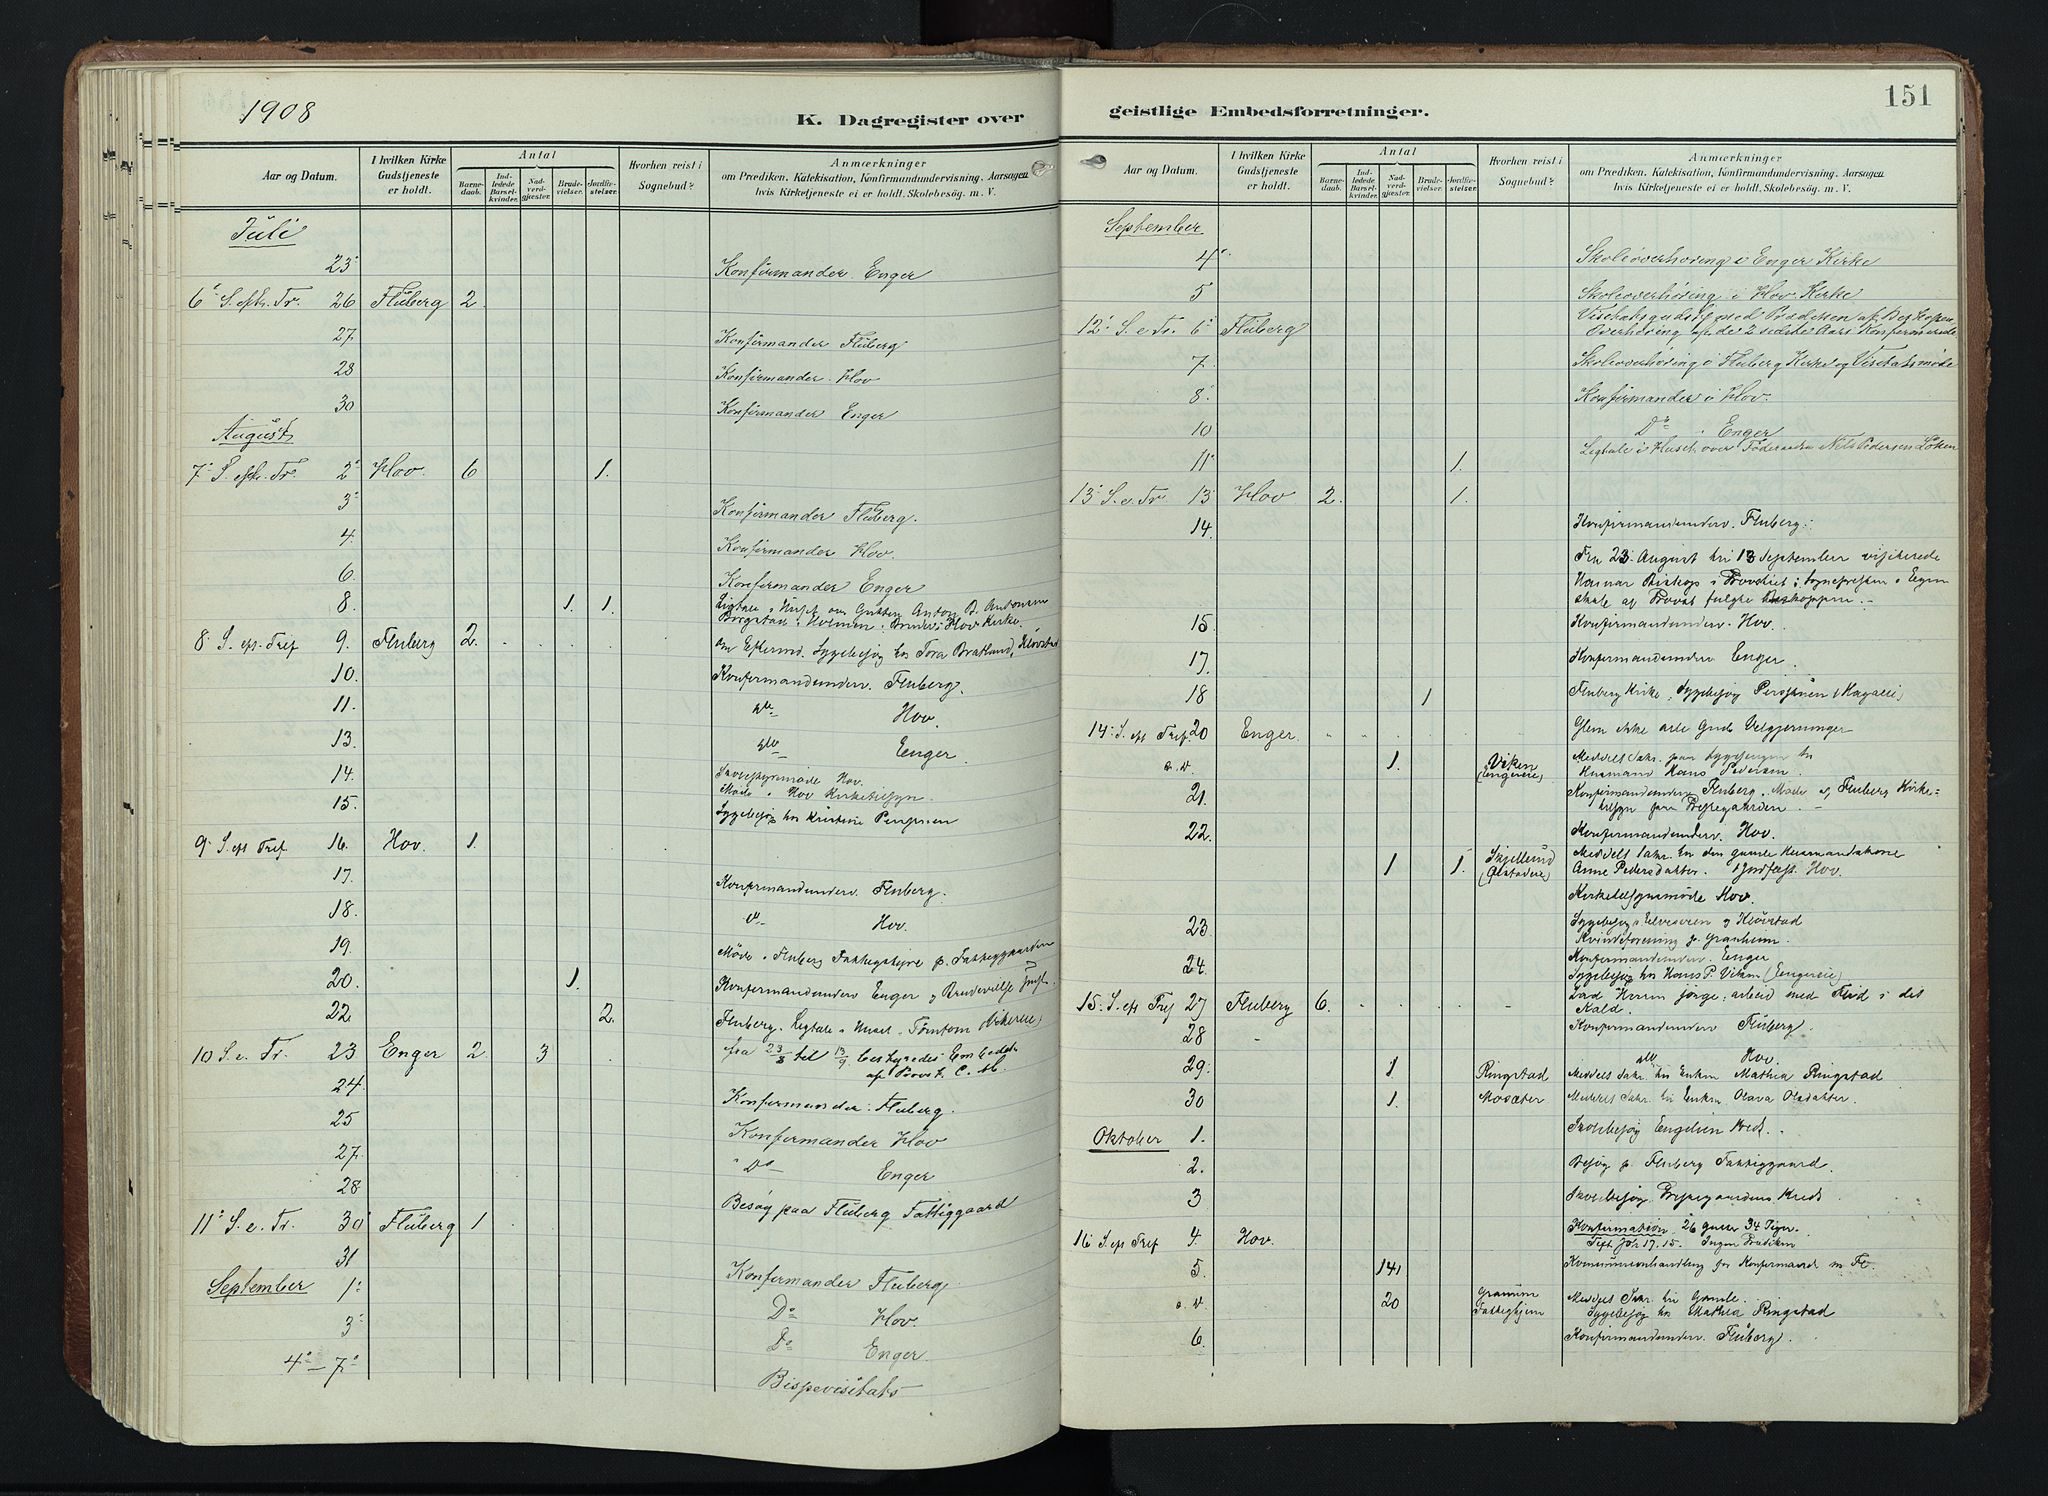 1908
K. Dagregister over
Aar og Datum.
I hvilken Kirke Gudstjeneste er holdt.
Antal
Barnedaab.
Indledede Barselkvinder.
Nadverdgjæster.
Brudevielser.
Jordfæstelser.
Hvorhen reist i Sognebud?
Anmærkninger
om Prædiken, Katekisation, Konfirmandundervisning, Aarsagen
hvis Kirketjeneste ei er holdt, Skolebesøg m. V.
Juli
23 Konfirmander Enger
6 S. eft. Tr. 26 Fluberg 2.
27 Konfirmander Fluberg
28 Konfirmander Hov
30 Konfirmander Enger
August
7 S. eft. Tr. 2 Hov. 6 1.
3 Konfirmander Fluberg.
4. Konfirmander Hov.
6. Konfirmander Enger
8. 1. 1. Ligtale i Huset over Gutten Anton
Hov Kirke.
8 S. ef. Tref 9. Fluberg 2. Sygebesøg hos Tora Bratland,
10. Konfirmandunderv. Fluberg.
11. do Hov.
13. do Enger.
14. Hov.
15. Møde i Hov Kirketilsyn.
Sygebesøg hos Kristine
9 S. eft Tref. 16. Hov. 1.
17. Konfirmandunderv. Fluberg.
18. Hov.
19. Møde i Fluberg Fattigstyre p. Fattiggaarden
20. 1. Konfirmandunderv Enger og Brudevielse
22. 2. Fluberg. Ligtale i Huset
10 S. e. Tr. 23 Enger 2. 3 fra 23/8 til 13/9 bestyredes Embedet
af Provst C.
24 Konfirmander Fluberg.
25 Konfirmander Hov
27. Do Enger
28 Besøg paa Fluberg Fattiggaard
11 S. e. Tr. 30 Fluberg 1
31 Konfirmander Fluberg.
September 1. Do Hov.
3 Do Enger.
4 - 7 Bispevisitats
geistlige Embedsforretninger.
151
Aar og Datum.
I hvilken Kirke Gudstjeneste er holdt.
Antal
Barnedaab.
Indledede Barselkvinder.
Nadverdgjæster.
Brudevielser.
Jordfæstelser.
Hvorhen reist i Sognebud?
Anmærkninger
om Prædiken, Katekisation, Konfirmandundervisning, Aarsagen
hvis Kirketjeneste ei er holdt, Skolebesøg m. V.
September
4 Skoleoverhøring i Enger Kirke
5 Skoleoverhøring i Hov Kirke
12 S. e Tr. 6 Fluberg Visitatsgudstj. med
Overhøring af de 2 sidste Aars Konfirmerede
7. Skoleoverhøring i Fluberg Kirke og Visitatsmøde
8. Konfirmander i Hov.
10 Do i Enger
11 1. Ligtale i Huset over Nils Pedersen
13 S. e. Tr. 13 Hov 2. 1.
14. Konfirmandunderv. Fluberg.
Fra 23 August til 13 September visiterede
Hamar Biskop i Provstiet; Sognepresten i Egen
skab af Provst fulgte Biskoppen.
15. Konfirmandunderv. Hov.
17. Konfirmandunderv Enger.
18 1 Fluberg Kirke, Sygebesøg
14 S. ef Tref 20 Enger. Glem ikke alle Guds Velgjerninger
e. d. 1. Viken (Engereie) Meddelt Sakr. paa Sygesengen til
Husmand Hans Pedersen.
21. Konfirmandunderv Fluberg. Møde af Fluberg Kirke-
tilsyn paa Prestegaarden.
22. Konfirmandunderv. Hov.
1 1. Meddelt Sakr. til den gamle Husmandskone
Anne Pedersdatter. Hov.
Kirketilsynsmøde Hov.
23. Sygebesøg
Kvindeforening p. Granheim.
24. Konfirmandunderv. Enger
Sygebesøg hos Hans P. Viken (Engereie)
15 S. ef Tref 27 Fluberg 6. arbeid med Flid i det
Kald.
28 Konfirmandunderv Fluberg.
29. 1 Ringstad do Hov.
Meddelt Sakr. til Enken Mathea Ringstad
30 1. Mosæter Meddelt Sakr. til Enken Olava Olsdatter.
Oktober 1. Skolebesøg Engelien Kreds.
2. Besøg p. Fluberg Fattiggaard.
3 Skolebesøg. Prestegaardens Kreds.
16 S. ef Tref 4. Hov. Konfirmation. 26 gutter 34 Piger.
Text Joh 17.15. Ingen Prædiken
5. 141 Kommunionhandling for Konfirmander m Fl.
e. d. 20 Granum Fattighjem Meddelt Sakr. til Gamle.
Sygebesøg hos Mathea Ringstad
6. Konfirmandunderv. Fluberg.